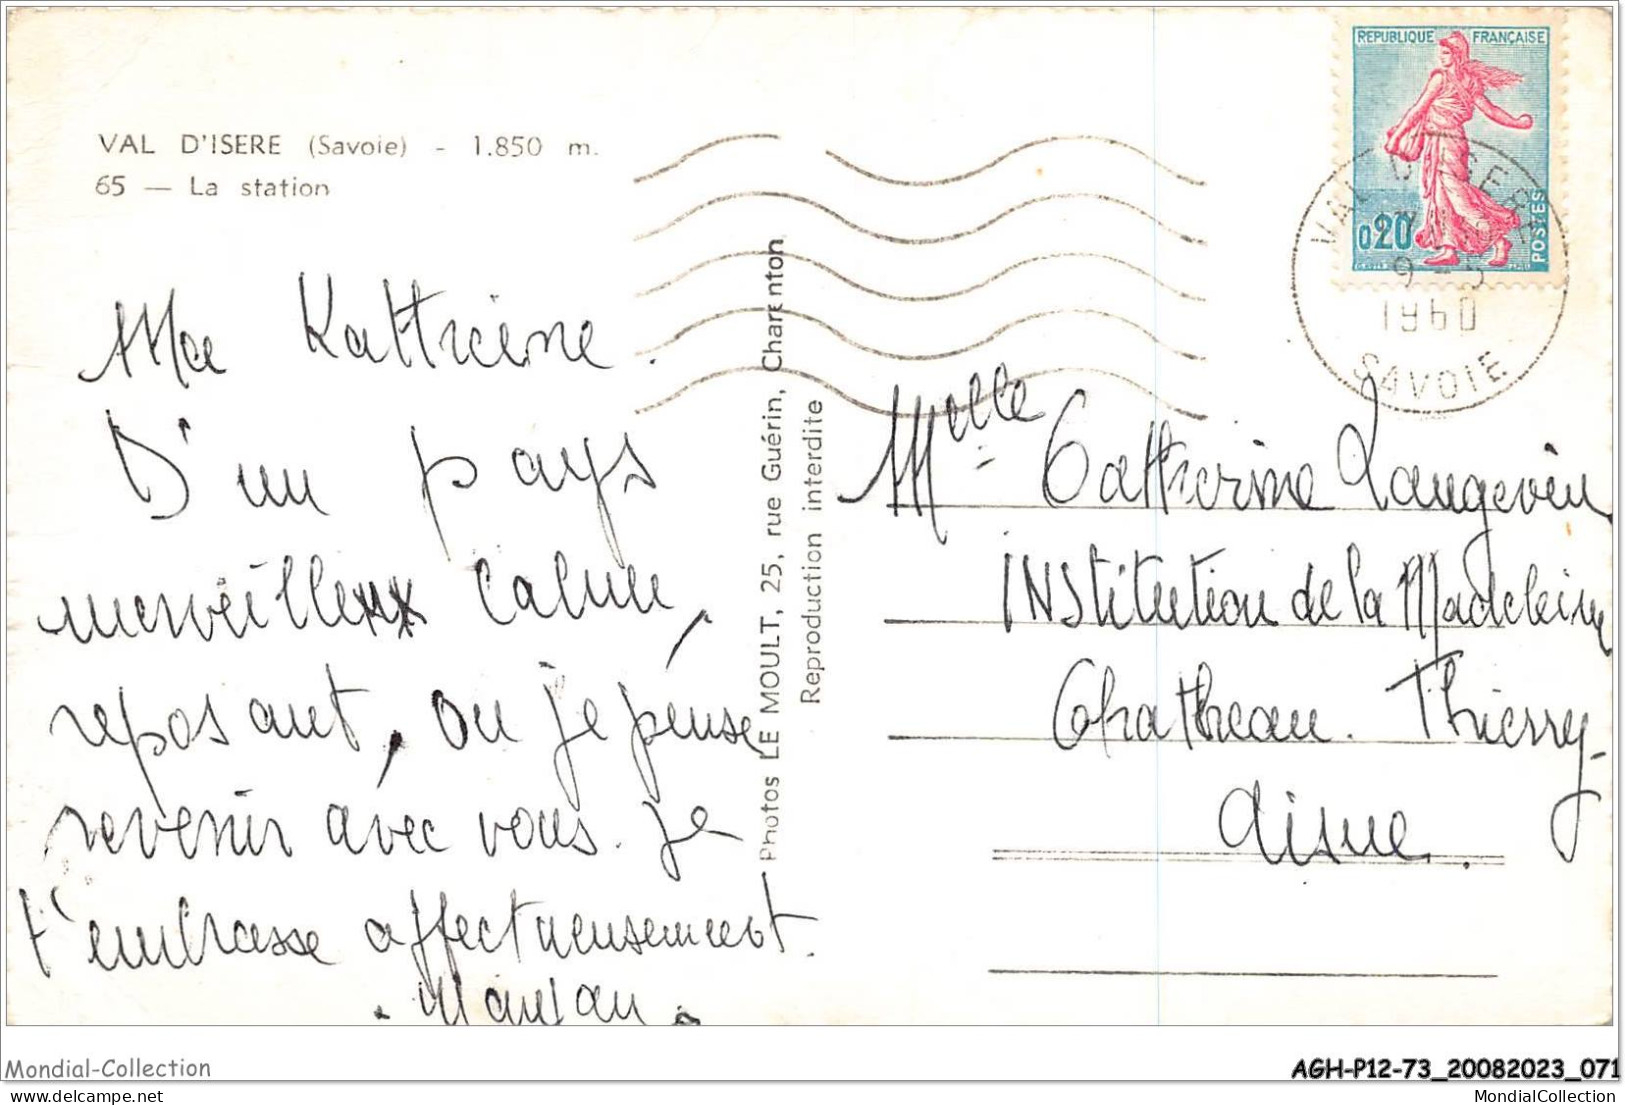 VAL D'ISERE (Savoie) - 1.850 m.
65 — La station
Ma Kathriene.
D'un pays
merveilleux calme,
reposant, ou je pense
revenir avec vous. Je
t'embrasse affectueusement.
Photos LE MOULT, 25, rue Guérin, Charenton
Reproduction interdite
REPUBLIQUE FRANÇAISE
0,20
POSTES
VAL D'ISERE
9 - 5
1960
SAVOIE
Melle Catherine Langevin
INStitution de la Madeleine
Chatheau. Thierry-
Aisne.
Mondial-Collection
AGH-P12-73_20082023_071
www.mondial-collection.com
MondialCollection.com